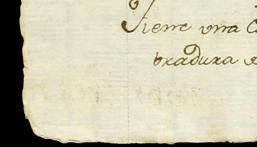 Tiene una
bradura